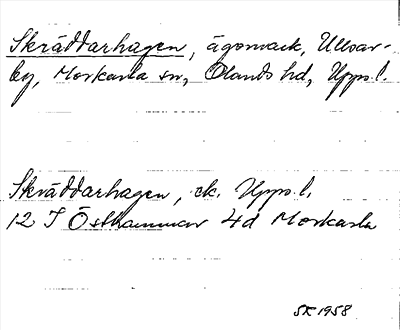 Skräddarhagen, ägomark, Ullvar-
by, Morkarla sn, Olands hd, Upps. l.
Skräddarhagen, ek. Upps. l.
12 I Östhammar 4d Morkarla
SK 1958